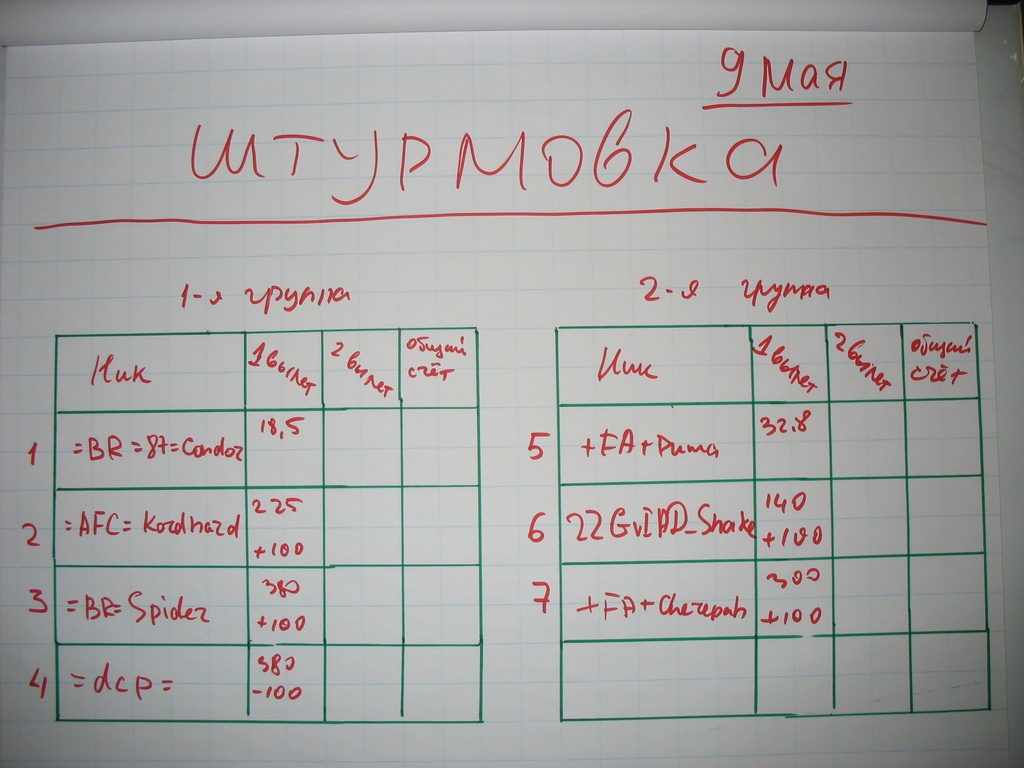 9 мая
ШТУРМОВКА
1-я группа
Ник 1 вылет 2 вылет общий счёт
1 =BR=87=Condor 18,5
2 =AFC=Kordhard 225 +100
3 =BR=Spider 380 +100
4 =dcp= 380 -100
2-я группа
Ник 1 вылет 2 вылет общий счёт
5 +FA+Puma 32.8
6 22GvIAD_Snake 140 +100
7 +FA+Cherepah 300 +100